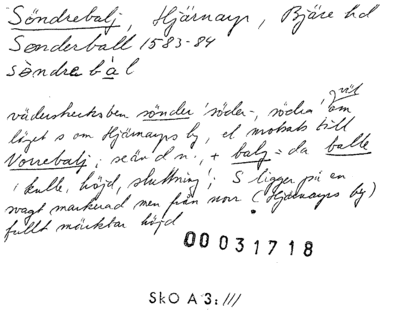 Söndrebalj, Hjärnarp, Bjäre hd
Sønderball 1583-84
sòndrabàl
väderstrecksben sönder 'söder-, södra' om
läget s om Hjärnarps by, el motsats till
Vorrebalj; se än d n., + balj = da balle
'kulle, höjd, sluttning'; S ligger på en
svagt markerad men från norr (Hjärnarps by)
fullt märkbar höjd
00031718
SkO A 3:///